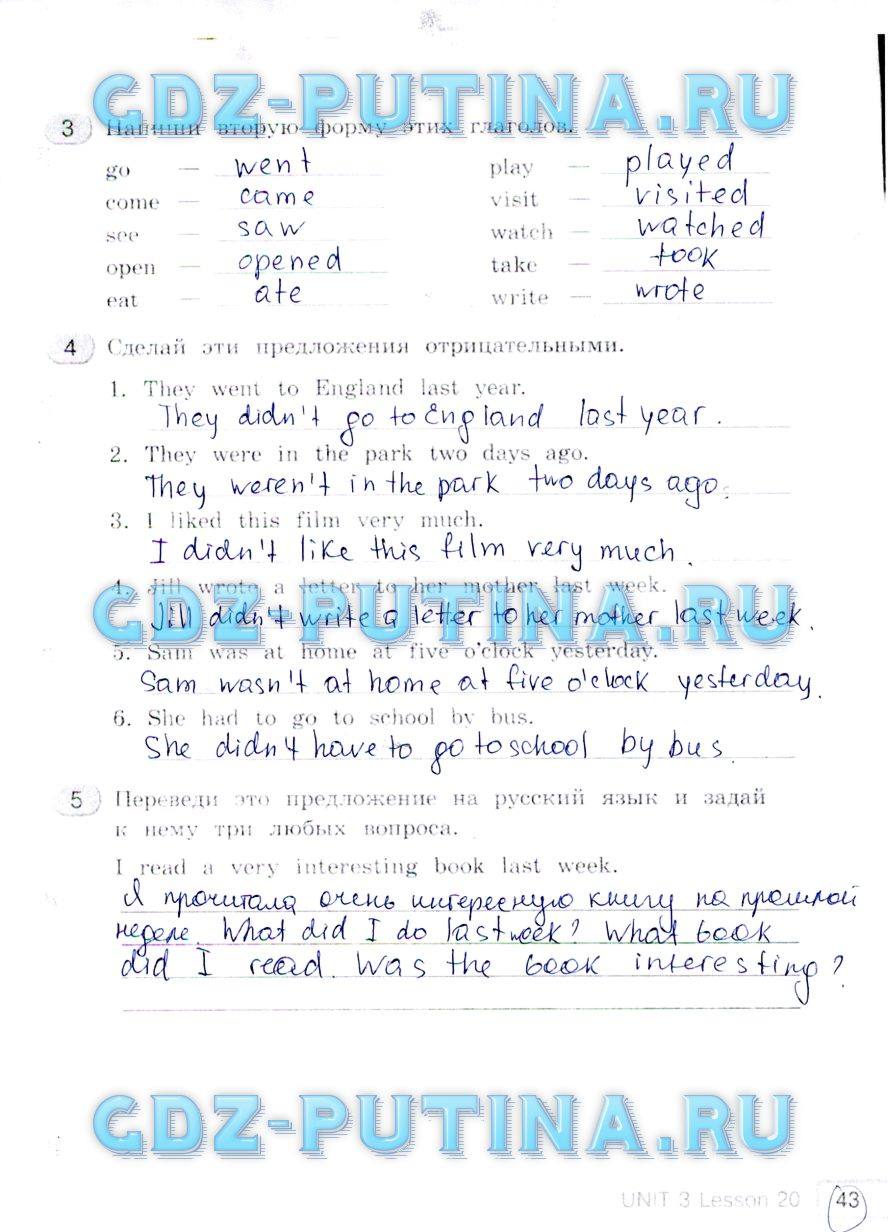 GDZ-PUTINA.RU
3 Напиши вторую форму этих глаголов.
go — went play — played
come — came visit — visited
see — saw watch — watched
open — opened take — took
eat — ate write — wrote
4 Сделай эти предложения отрицательными.
1. They went to England last year.
They didn't go to England last year.
2. They were in the park two days ago.
They weren't in the park two days ago.
3. I liked this film very much.
I didn't like this film very much.
4. Jill wrote a letter to her mother last week.
GDZ-PUTINA.RU
Jill didn't write a letter to her mother last week.
5. Sam was at home at five o'clock yesterday.
Sam wasn't at home at five o'clock yesterday.
6. She had to go to school by bus.
She didn't have to go to school by bus.
5 Переведи это предложение на русский язык и задай
к нему три любых вопроса.
I read a very interesting book last week.
Я прочитала очень интересную книгу на прошлой
неделе. What did I do last week? What book
did I read. Was the book interesting?
GDZ-PUTINA.RU
UNIT 3 Lesson 20 43